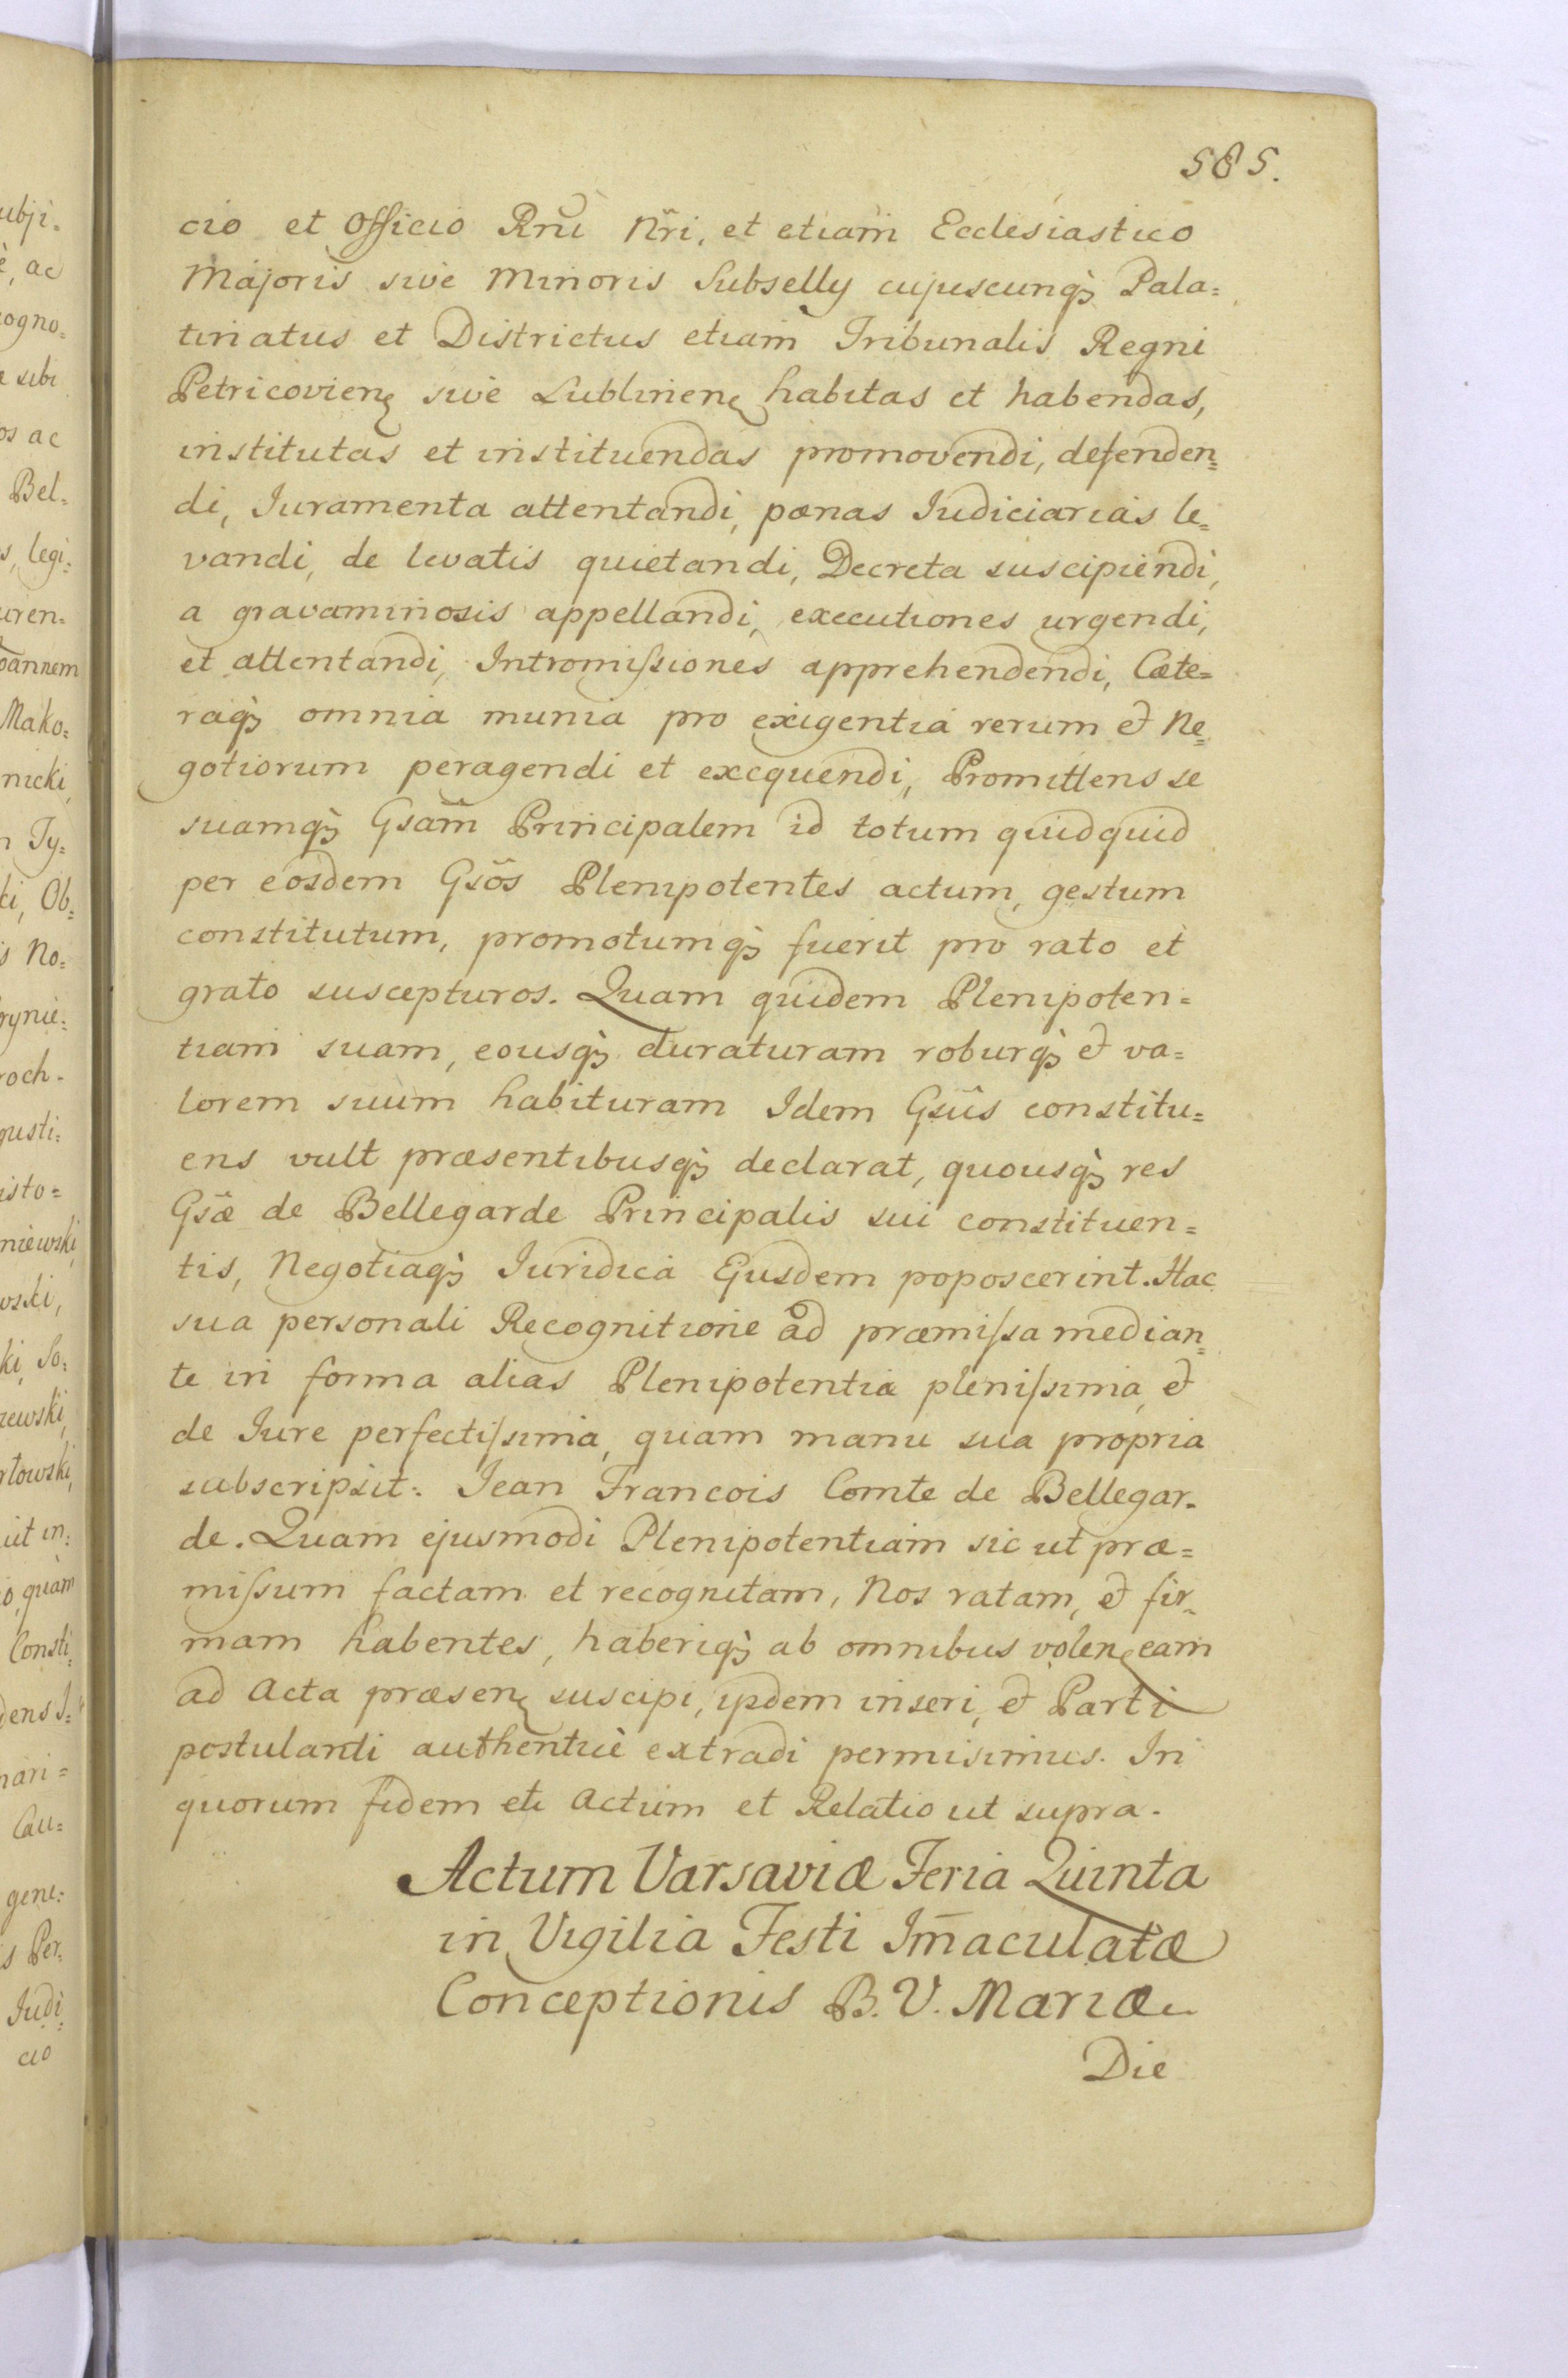 585.
cio et Officio Rñi Nr̃i, et etiam Ecclesiastico
Majoris sivè Minoris Subsellÿ cujuscunqȝ Pala=
tinatus et Districtus etiam Tribunalis Regni
Petricovien̨ sivè Lublinen̨ habitas et habendas,
institutas et instituendas promovendi, defenden=
di, Juramenta attentandi, pœnas Judiciarias le=
vandi, de levatis quietandi, Decreta suscipiendi,
a gravaminosis appellandi, executiones urgendi,
et attentandi, Intromiſsiones apprehendendi, Cæte=
raqȝ omnia munia pro exigentia rerum & Ne=
gotiorum peragendi et exequendi, Promittens se
suamqȝ Gsam̃ Principalem id totum quidquid
per eosdem Gsõs Plenipotentes actum, gestum
constitutum, promotumqȝ fuerit pro rato et
grato suscepturos. Quam quidem Plenipoten=
tiam suam, eousqȝ duraturam roburqȝ & va=
lorem suum habituram Idem Gsũs constitu=
ens vult præsentibusqȝ declarat, quousqȝ res
Gsæ̃ de Bellegarde Principalis sui constituen=
tis, Negotiaqȝ Juridica Ejusdem poposcerint. Hac
sua personali Recognitione ad præmiſsa median=
te in forma alias Plenipotentia pleniſsima, &
de Jure perfectiſsima, quam manu sua propria
subscripsit: Jean Francois Comte de Bellegar-
de. Quam ejusmodi Plenipotentiam sic ut præ=
miſsum factam et recognitam, Nos ratam, & fir=
mam habentes, haberiqȝ ab omnibus volen̨ eam
ad Acta præsen̨ suscipi, ijsdem inseri, & Parti
postulanti authenticè extradi permisimus. In
quorum fidem etc Actum et Relatio ut supra.
Actum Varsaviæ Feria Quinta
in Vigilia Festi Im̄aculatæ
Conceptionis B. V. Mariæ
Die
ubji=
è, ac
cogno=
sibi
os ac
Bel=
s, legi=
uren=
oannem
Mako=
nicki,
Ty=
ki, Ob=
No=
rynie=
roch-
gusti=
isto=
niewski,
wski,
ki, So=
zewski,
rtowski,
ut in=
o, quàm
Consti=
dens
nari=
Cau=
gene=
s Per=
Judi=
cio